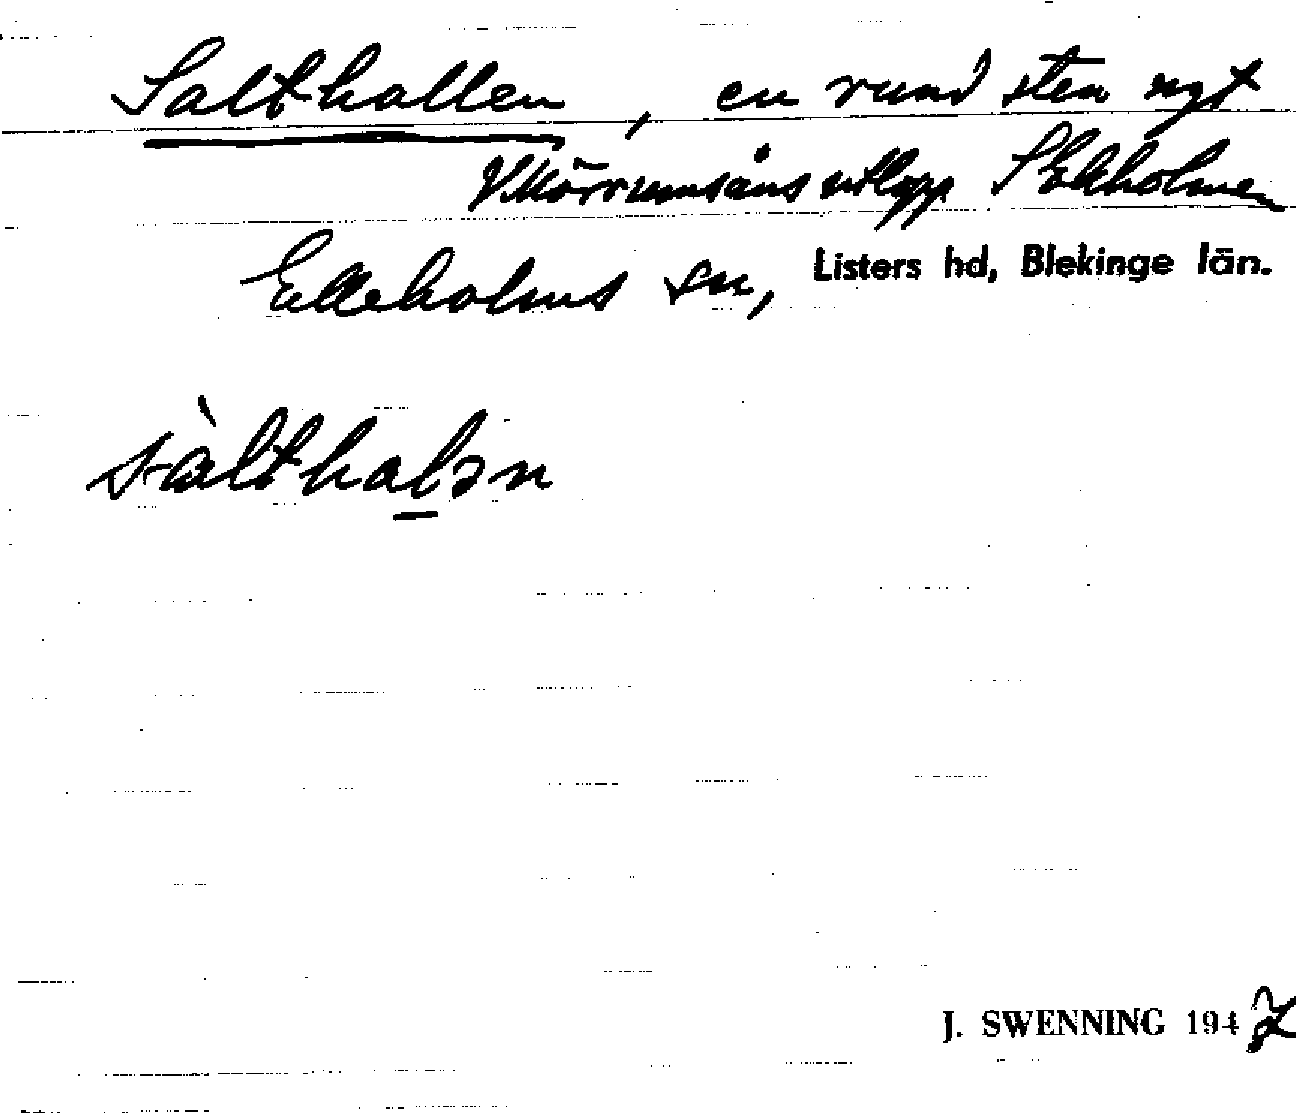 Salthallen, en rund sten
V Mörrumsåns utlopp S Ekholmen
Elleholms sn, Listers hd, Blekinge län.
sàlthalən
J. SWENNING 194